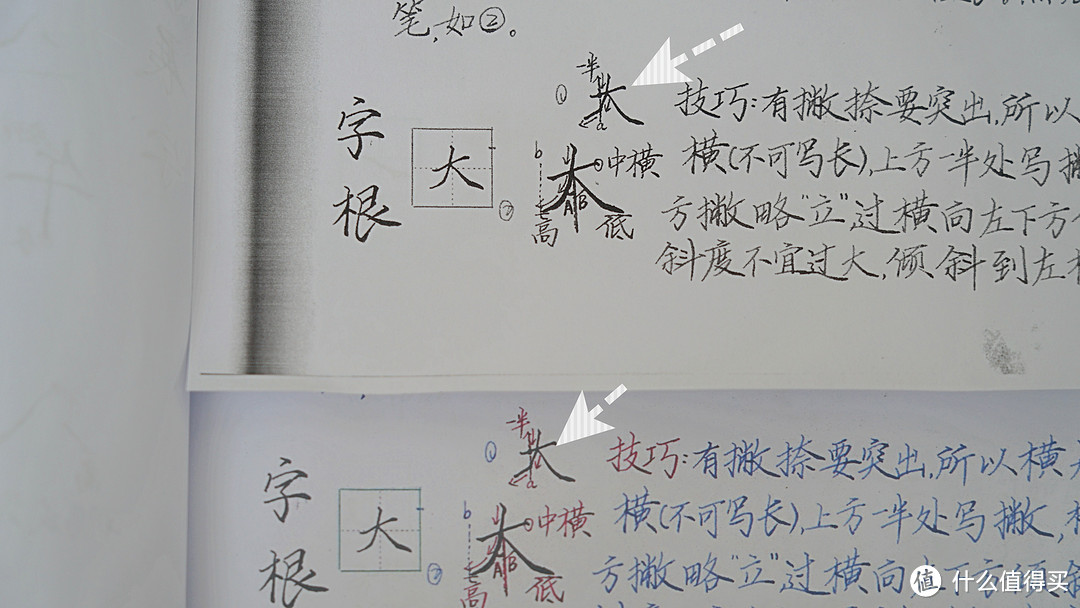 笔,如②。
字根
大
一半
①
大
a
b
大
中横
A B
高
低
②
技巧:有撇捺要突出,所以
横(不可写长),上方一半处写撇
方撇略“立”过横向左下方
斜度不宜过大,倾斜到左
字根
大
一半
①
大
a
b
大
中横
A B
高
低
②
技巧:有撇捺要突出,所以横
横(不可写长),上方一半处写撇,
方撇略“立”过横向左下方倾斜
值 什么值得买